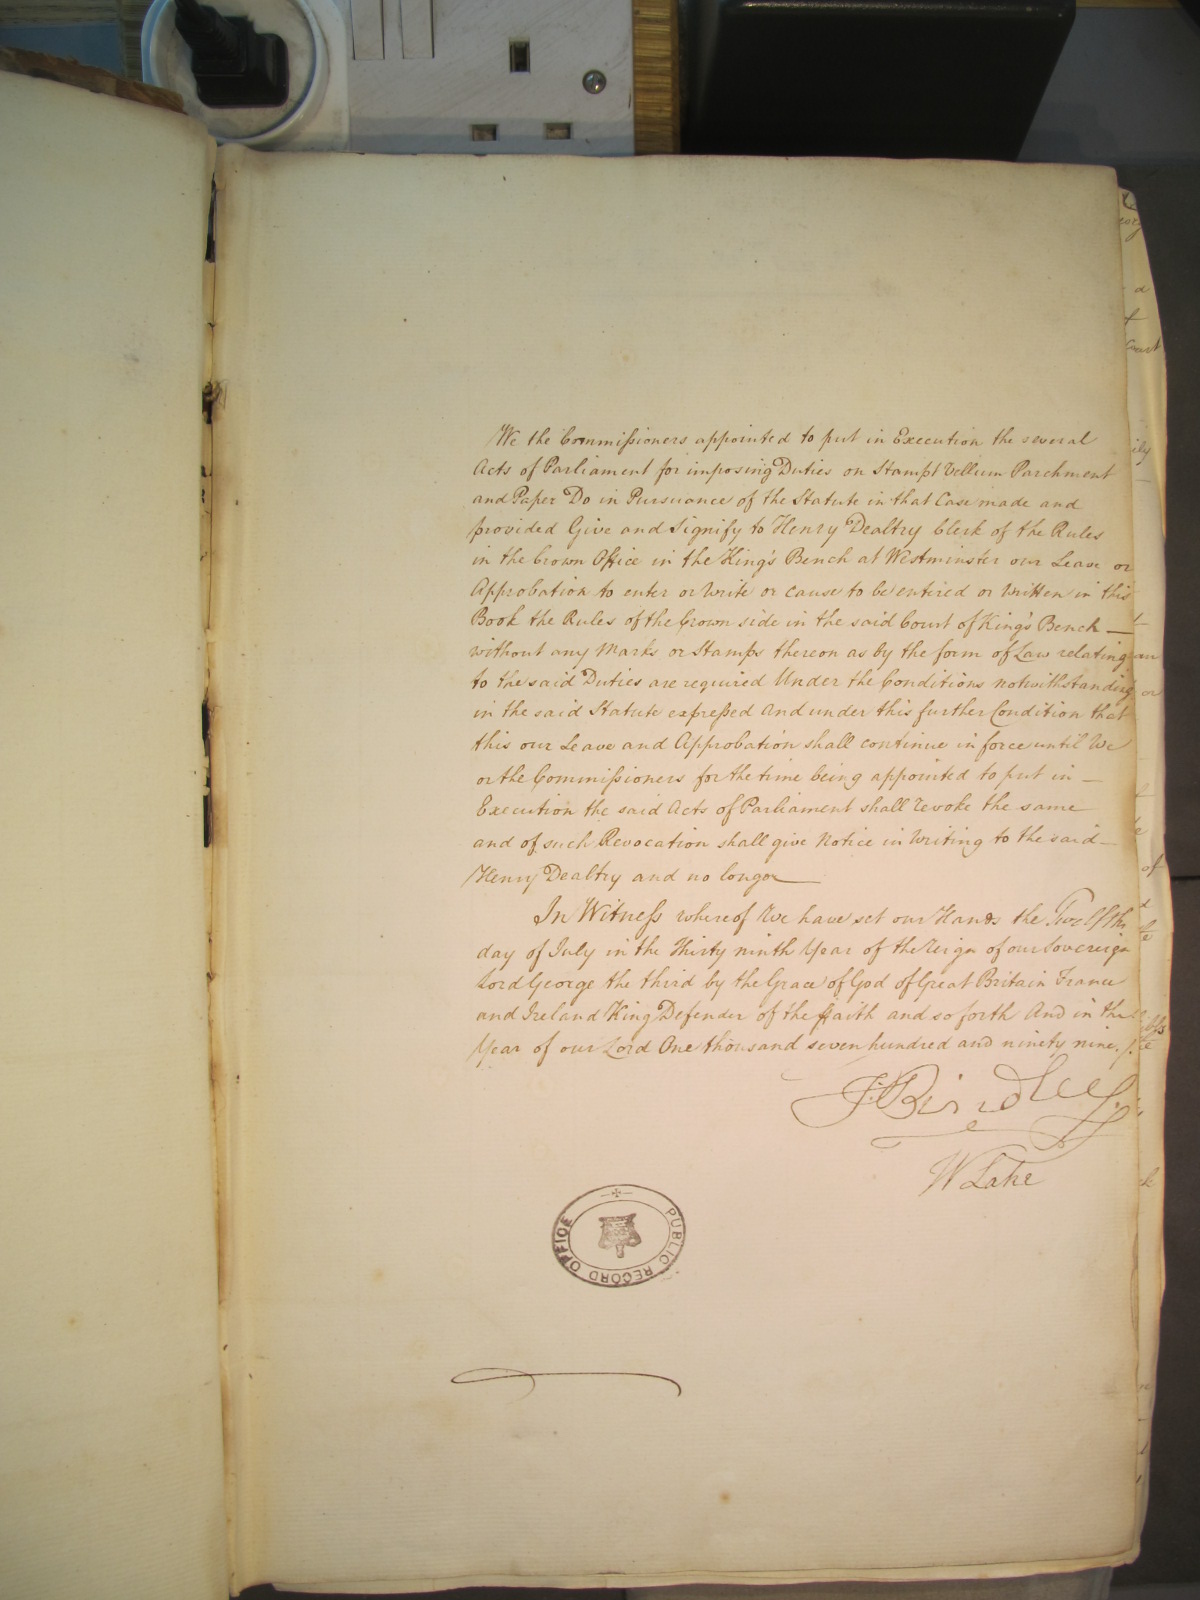 We the Commissioners appointed to put in Execution the several
Acts of Parliament for imposing Duties on Stampt Vellum Parchment
and Paper Do in Pursuance of the Statute in that Case made and
provided Give and Signify to Henry Dealtry Clerk of the Rules
in the Crown Office in the King's Bench at Westminster our Leave or
Approbation to enter or Write or cause to be entered or Written in this
Book the Rules of the Crown side in the said Court of King's Bench —
without any Marks or Stamps thereon as by the form of Law relating
to the said Duties are required Under the Conditions notwithstanding
in the said Statute expressed And under this further Condition that
this our Leave and Approbation shall continue in force until We
or the Commissioners for the time being appointed to put in —
Execution the said Acts of Parliament shall revoke the same
and of such Revocation shall give Notice in Writing to the said —
Henry Dealtry and no longer —
In Witness whereof We have set our Hands the Twelfth
day of July in the Thirty ninth Year of the Reign of our Sovereign
Lord George the third by the Grace of God of Great Britain France
and Ireland King Defender of the Faith and so forth And in the
Year of our Lord One thousand seven hundred and ninety nine.
J: Bindley
W Lake
PUBLIC RECORD OFFICE